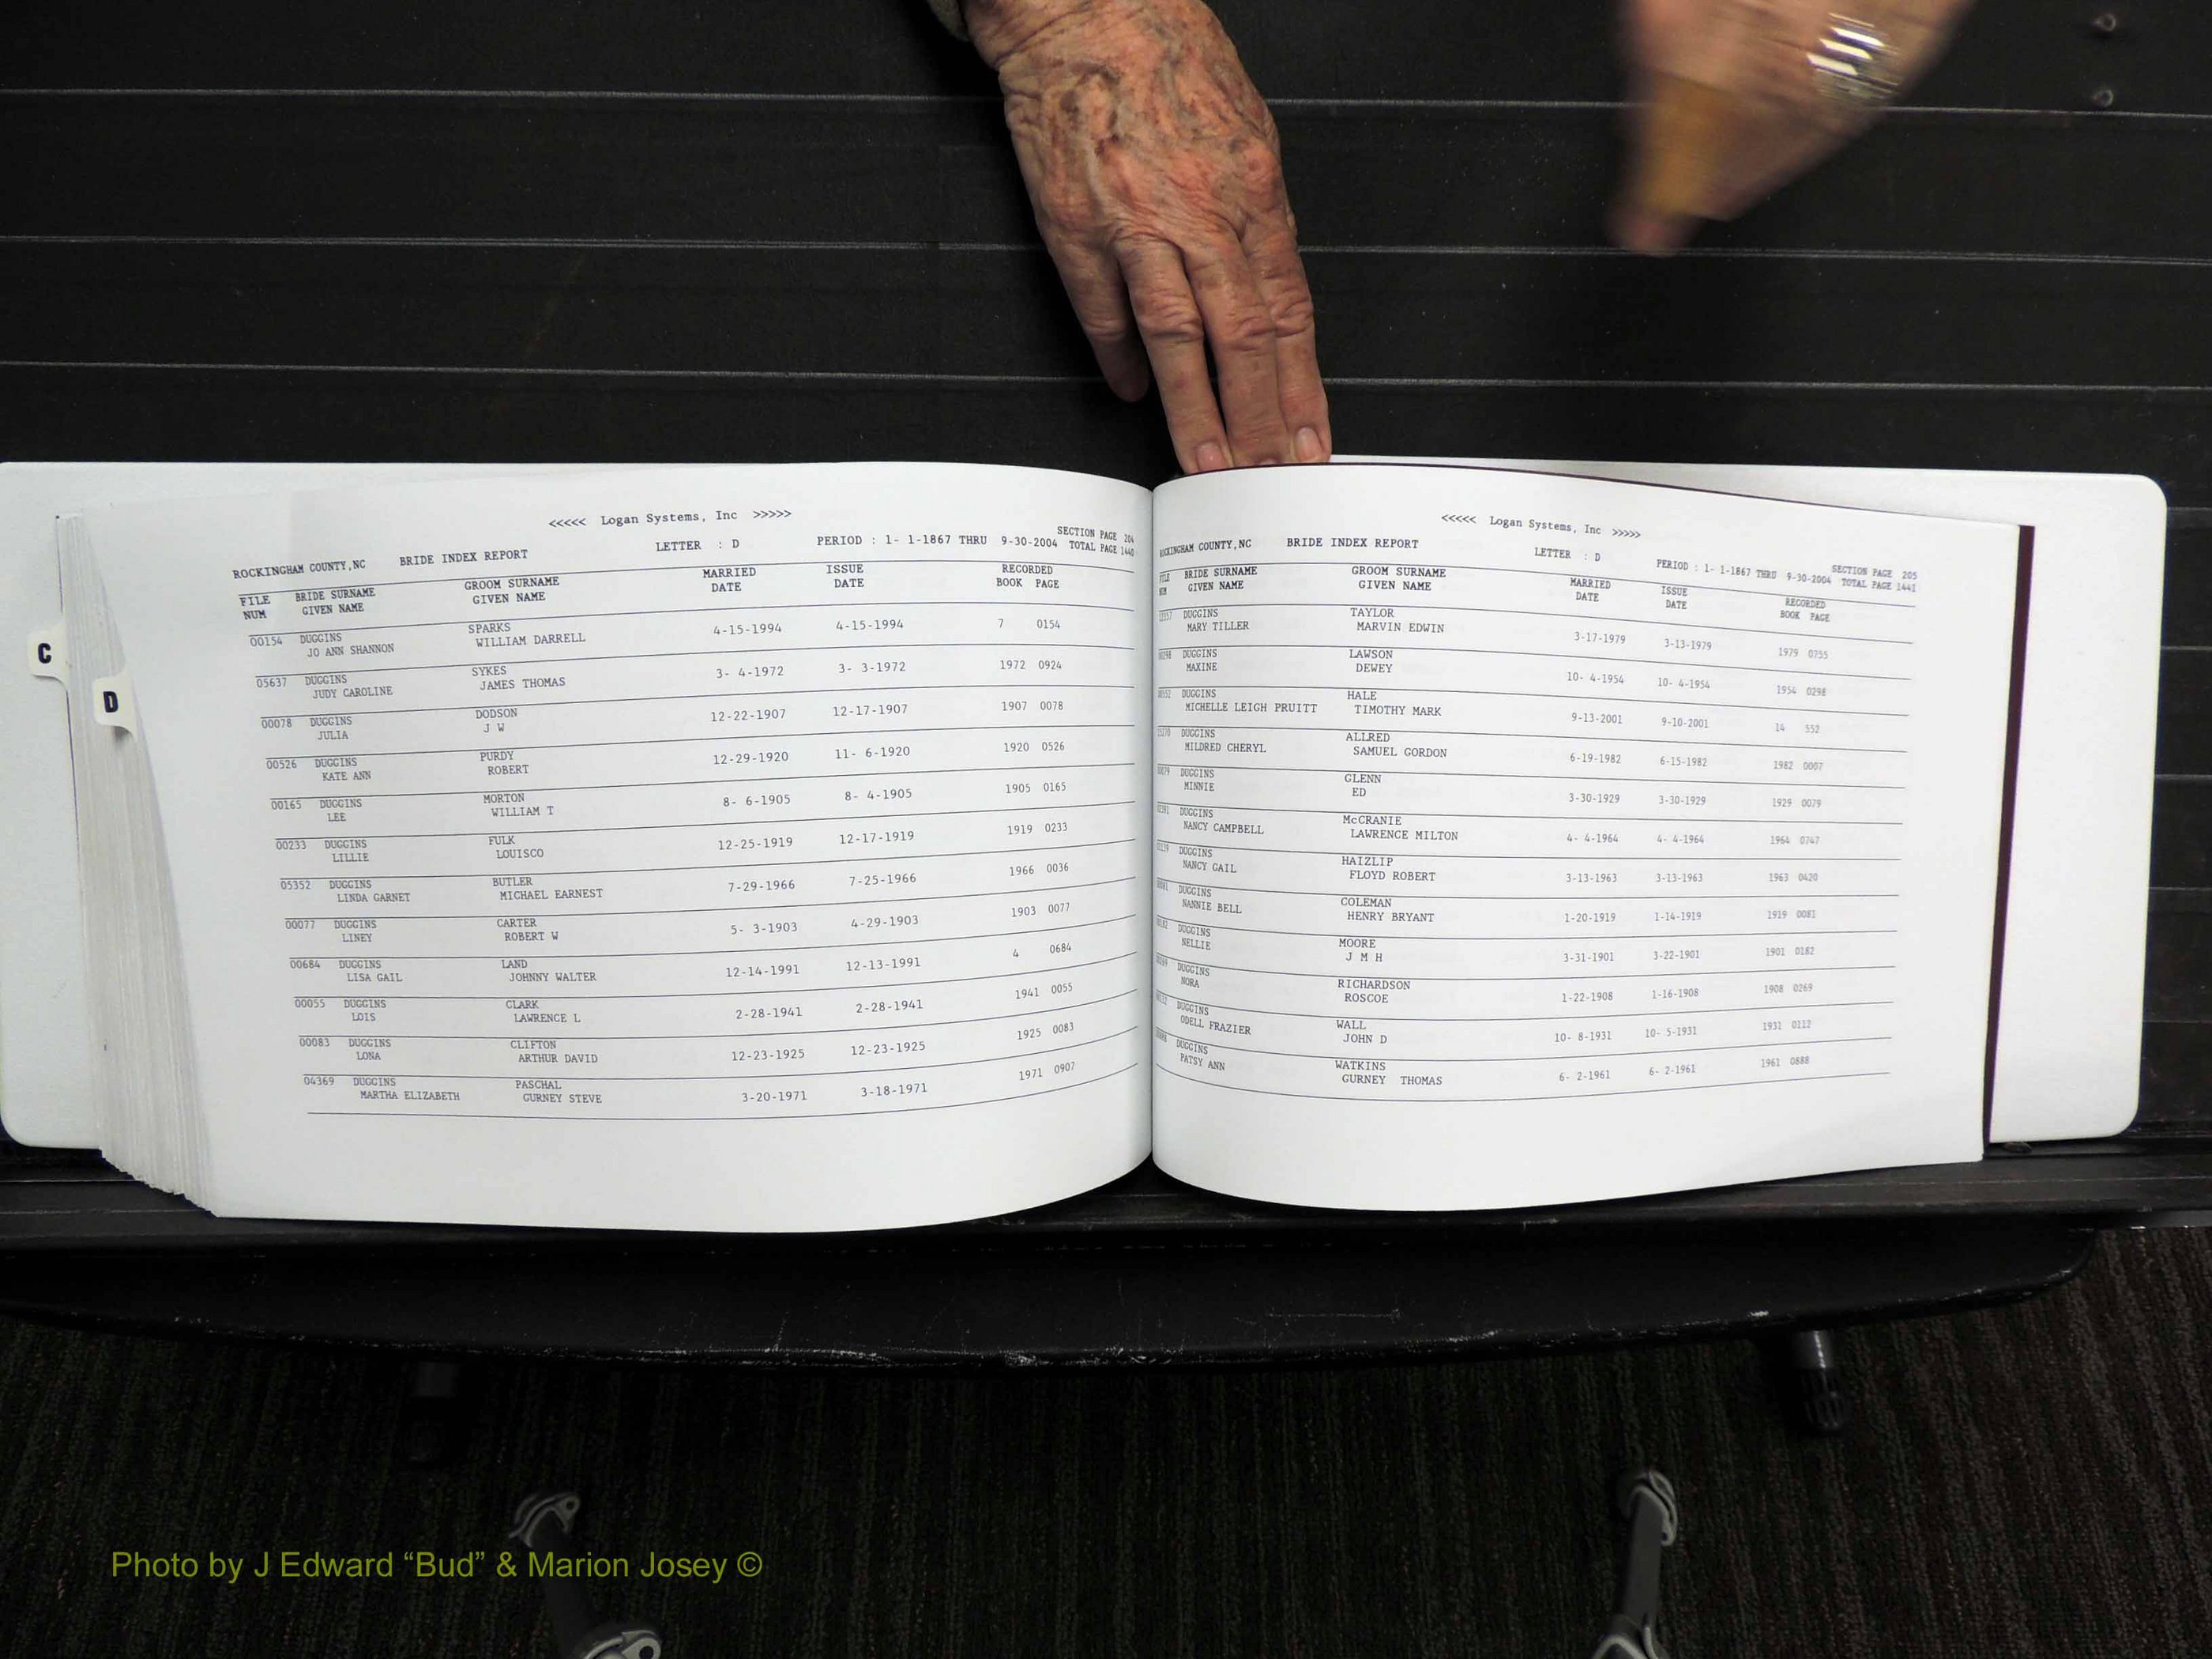 <<<<< Logan Systems, Inc >>>>>
SECTION PAGE 204
ROCKINGHAM COUNTY,NC BRIDE INDEX REPORT LETTER : D PERIOD : 1- 1-1867 THRU 9-30-2004 TOTAL PAGE 1440
FILE BRIDE SURNAME GROOM SURNAME MARRIED ISSUE RECORDED
NUM GIVEN NAME GIVEN NAME DATE DATE BOOK PAGE
00154 DUGGINS SPARKS 4-15-1994 4-15-1994 7 0154
JO ANN SHANNON WILLIAM DARRELL
05637 DUGGINS SYKES 3- 4-1972 3- 3-1972 1972 0924
JUDY CAROLINE JAMES THOMAS
00078 DUGGINS DODSON 12-22-1907 12-17-1907 1907 0078
JULIA J W
00526 DUGGINS PURDY 12-29-1920 11- 6-1920 1920 0526
KATE ANN ROBERT
00165 DUGGINS MORTON 8- 6-1905 8- 4-1905 1905 0165
LEE WILLIAM T
00233 DUGGINS FULK 12-25-1919 12-17-1919 1919 0233
LILLIE LOUISCO
05352 DUGGINS BUTLER 7-29-1966 7-25-1966 1966 0036
LINDA GARNET MICHAEL EARNEST
00077 DUGGINS CARTER 5- 3-1903 4-29-1903 1903 0077
LINEY ROBERT W
00684 DUGGINS LAND 12-14-1991 12-13-1991 4 0684
LISA GAIL JOHNNY WALTER
00055 DUGGINS CLARK 2-28-1941 2-28-1941 1941 0055
LOIS LAWRENCE L
00083 DUGGINS CLIFTON 12-23-1925 12-23-1925 1925 0083
LONA ARTHUR DAVID
04369 DUGGINS PASCHAL 3-20-1971 3-18-1971 1971 0907
MARTHA ELIZABETH GURNEY STEVE
C
D
<<<<< Logan Systems, Inc >>>>>
SECTION PAGE 205
ROCKINGHAM COUNTY,NC BRIDE INDEX REPORT LETTER : D PERIOD : 1- 1-1867 THRU 9-30-2004 TOTAL PAGE 1441
FILE BRIDE SURNAME GROOM SURNAME MARRIED ISSUE RECORDED
NUM GIVEN NAME GIVEN NAME DATE DATE BOOK PAGE
DUGGINS TAYLOR 3-17-1979 3-13-1979 1979 0755
MARY TILLER MARVIN EDWIN
DUGGINS LAWSON 10- 4-1954 10- 4-1954 1954 0298
MAXINE DEWEY
DUGGINS HALE 9-13-2001 9-10-2001 14 552
MICHELLE LEIGH PRUITT TIMOTHY MARK
DUGGINS ALLRED 6-19-1982 6-15-1982 1982 0007
MILDRED CHERYL SAMUEL GORDON
DUGGINS GLENN 3-30-1929 3-30-1929 1929 0079
MINNIE ED
DUGGINS McCRANIE 4- 4-1964 4- 4-1964 1964 0747
NANCY CAMPBELL LAWRENCE MILTON
DUGGINS HAIZLIP 3-13-1963 3-13-1963 1963 0420
NANCY GAIL FLOYD ROBERT
DUGGINS COLEMAN 1-20-1919 1-14-1919 1919 0081
NANNIE BELL HENRY BRYANT
DUGGINS MOORE 3-31-1901 3-22-1901 1901 0182
NELLIE J M H
DUGGINS RICHARDSON 1-22-1908 1-16-1908 1908 0269
NORA ROSCOE
DUGGINS WALL 10- 8-1931 10- 5-1931 1931 0112
ODELL FRAZIER JOHN D
DUGGINS WATKINS 6- 2-1961 6- 2-1961 1961 0888
PATSY ANN GURNEY THOMAS
Photo by J Edward “Bud” & Marion Josey ©